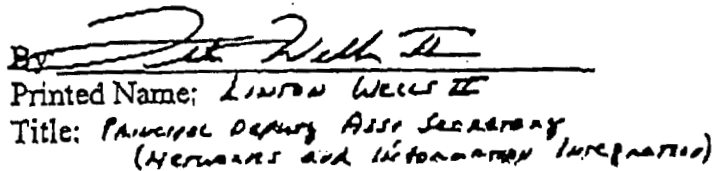 By Lin Wells II
Printed Name: LINTON WELLS II
Title: Principal Deputy Asst Secretary
(Networks and Information Integration)